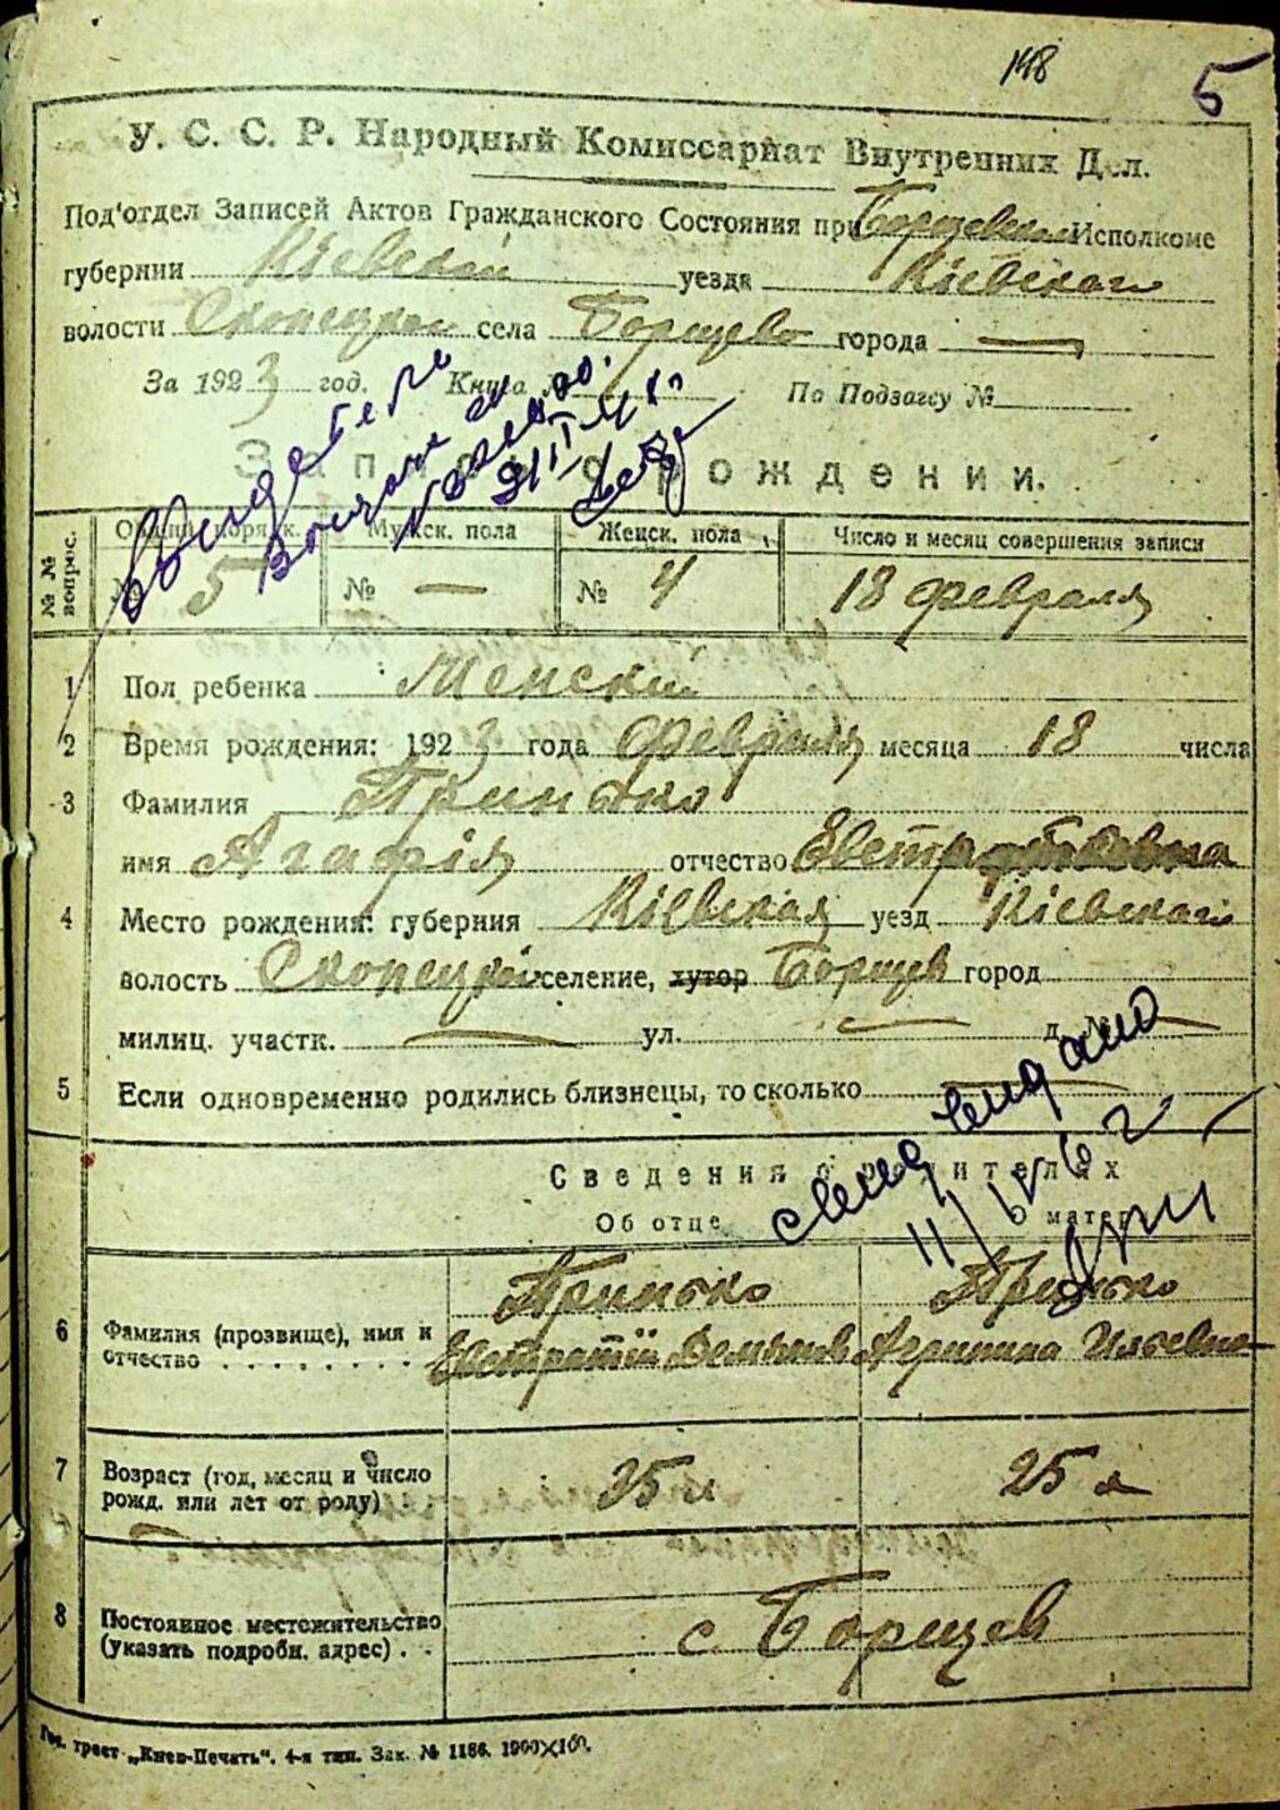 148 5
У. С. С. Р. Народный Комиссариат Внутренних Дел.
Под'отдел Записей Актов Гражданского Состояния при Борщевском Исполкоме
губернии Кіевской уезда Кіевскаго
волости села Борщево города —
За 1923 год. Книга По Подзагсу №
Запись о рождении.
№ № вопрос. Общий порядк. Мужск. пола Женск. пола Число и месяц совершения записи
№ 5 № — № 4 18 февраля
1 Пол ребенка Женскій
2 Время рождения: 1923 года февраля месяца 18 числа
3 Фамилия Принько
имя Агафія отчество
4 Место рождения: губерния Кіевская уезд Кіевскаго
волость селение, хутор Борщев город
милиц. участк. — ул. — д. № —
5 Если одновременно родились близнецы, то сколько —
свид выдано
Сведения о родителях
11/ 62
Об отце О матер
6 Фамилия (прозвище), имя и отчество . . . . . . . . Принько Принько
Евстратій Демьянов Агрипина Ильевна
7 Возраст (год, месяц и число рожд. или лет от роду) 35 л 25 л
8 Постоянное местожительство (указать подробн. адрес) . . с. Борщев
Гос. трест „Киев-Печать". 4-я тип. Зак. № 1186. 1900×100.